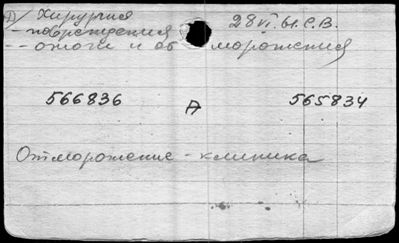 А) Хирургия 28 VI.61.С.В.
- повреждения
-- ожоги и об морожения
566836 А 565834
Отморожение - клиника